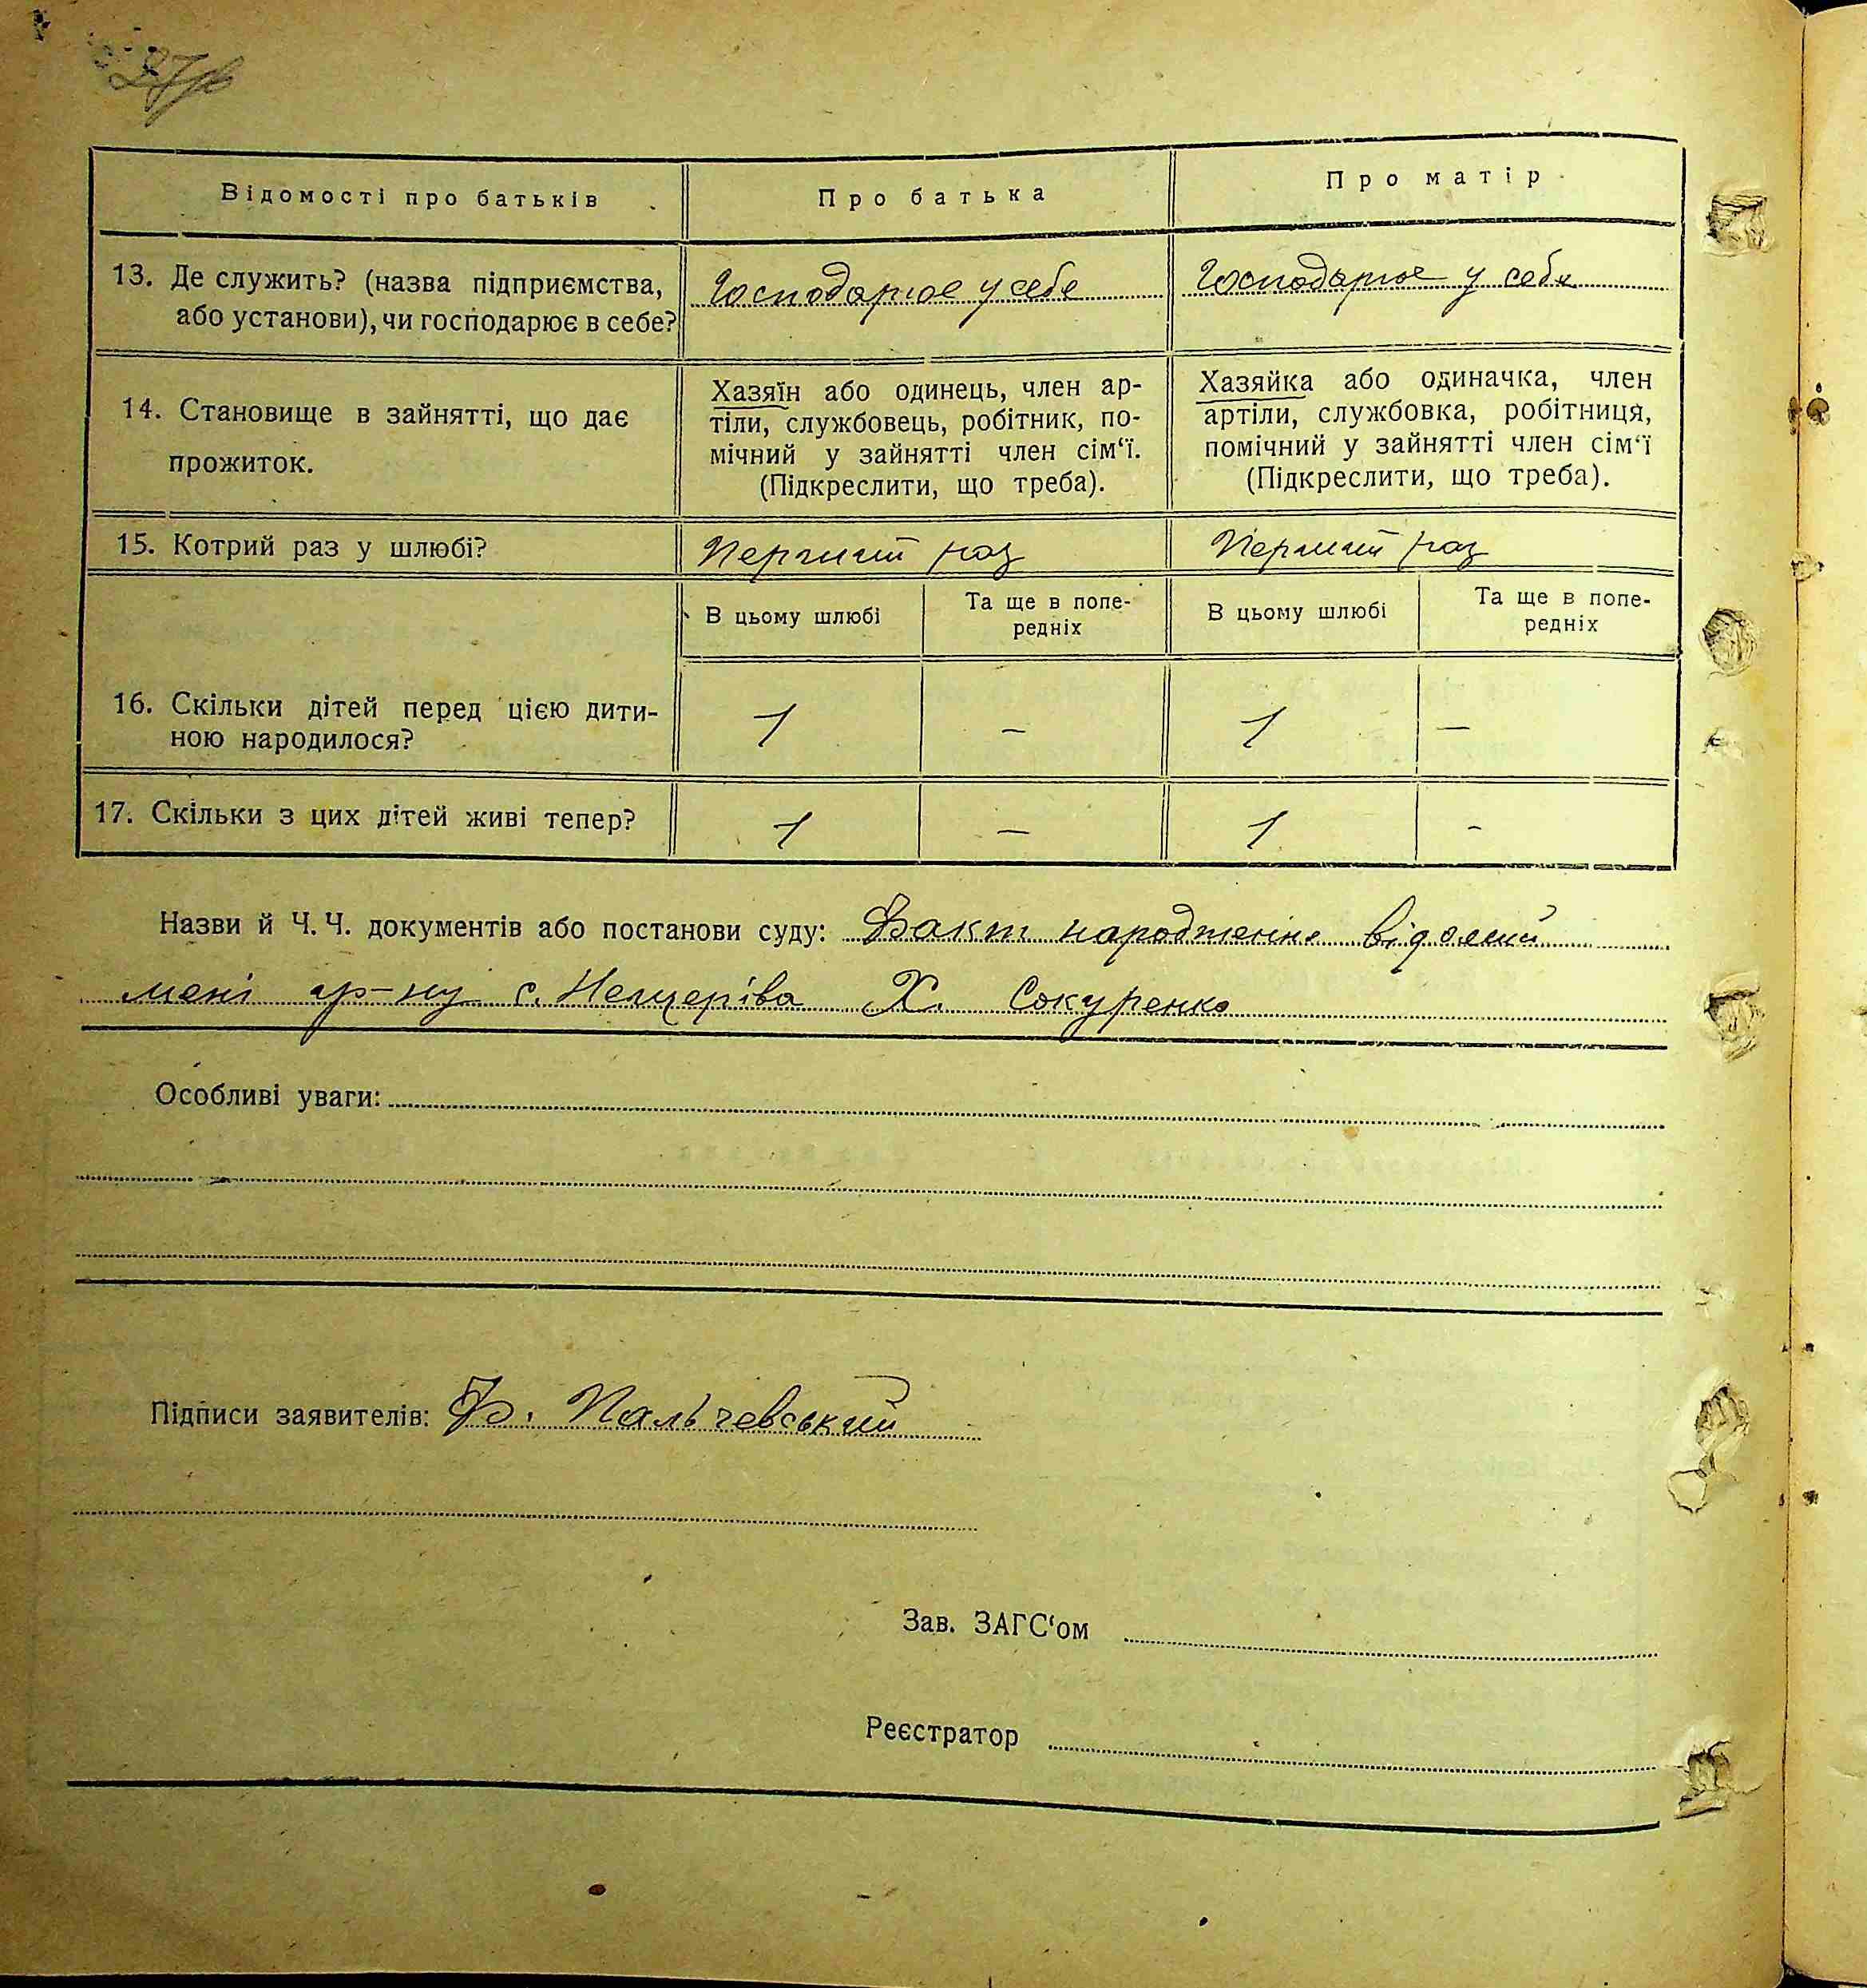 Відомості про батьків
Про батька
Про матір
13. Де служить? (назва підприємства,
або установи), чи господарює в себе?
Господарює у себе
Господарює у себе
14. Становище в зайнятті, що дає
прожиток.
Хазяїн або одинець, член ар-
тіли, службовець, робітник, по-
мічний у зайнятті член сім‘ї.
(Підкреслити, що треба).
Хазяйка або одиначка, член
артіли, службовка, робітниця,
помічний у зайнятті член сім‘ї
(Підкреслити, що треба).
15. Котрий раз у шлюбі?
Перший раз
Перший раз
В цьому шлюбі
Та ще в попе-
редніх
В цьому шлюбі
Та ще в попе-
редніх
16. Скільки дітей перед цією дити-
ною народилося?
1
—
1
—
17. Скільки з цих дітей живі тепер?
1
—
1
-
Назви й Ч. Ч. документів або постанови суду: Факт народження відомий
мені гр-ну с. Нещерівa Х. Сокуренко
Особливі уваги:
Підписи заявителів: Ф. Пальчевський
Зав. ЗАГС‘ом
Реєстратор